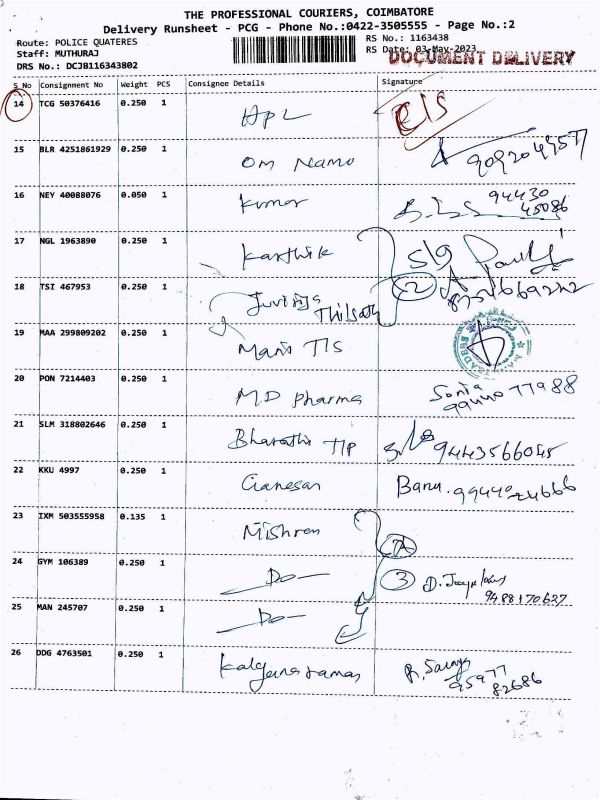 THE PROFESSIONAL COURIERS, COIMBATORE
Delivery Runsheet - PCG - Phone No.:0422-3505555 - Page No.:2
Route: POLICE QUATERES
RS No.: 1163438
Staff: MUTHURAJ
RS Date: 03-May-2023
DOCUMENT DELIVERY
DRS No.: DCJB116343802
S_No Consignment No Weight PCS Consignee Details Signature
14 TCG 50376416 0.250 1 APL
15 BLR 4251861929 0.250 1 OM Namo
16 NEY 40088076 0.050 1 Kumar 94430
45086
17 NGL 1963890 0.250 1 Karthik
18 TSI 467953 0.250 1 Thilsath 2
19 MAA 299809202 0.250 1
20 PON 7214403 0.250 1 MD Pharma Sonia
21 SLM 318802646 0.250 1 Bharathi 9443566045
22 KKU 4997 0.250 1 Ganesan Banu. 9944024666
23 IXM 503555958 0.135 1 Mishren
24 GYM 106389 0.250 1 - Do - 3
9488170627
25 MAN 245707 0.250 1 - Do -
26 DDG 4763501 0.250 1 95977
82686